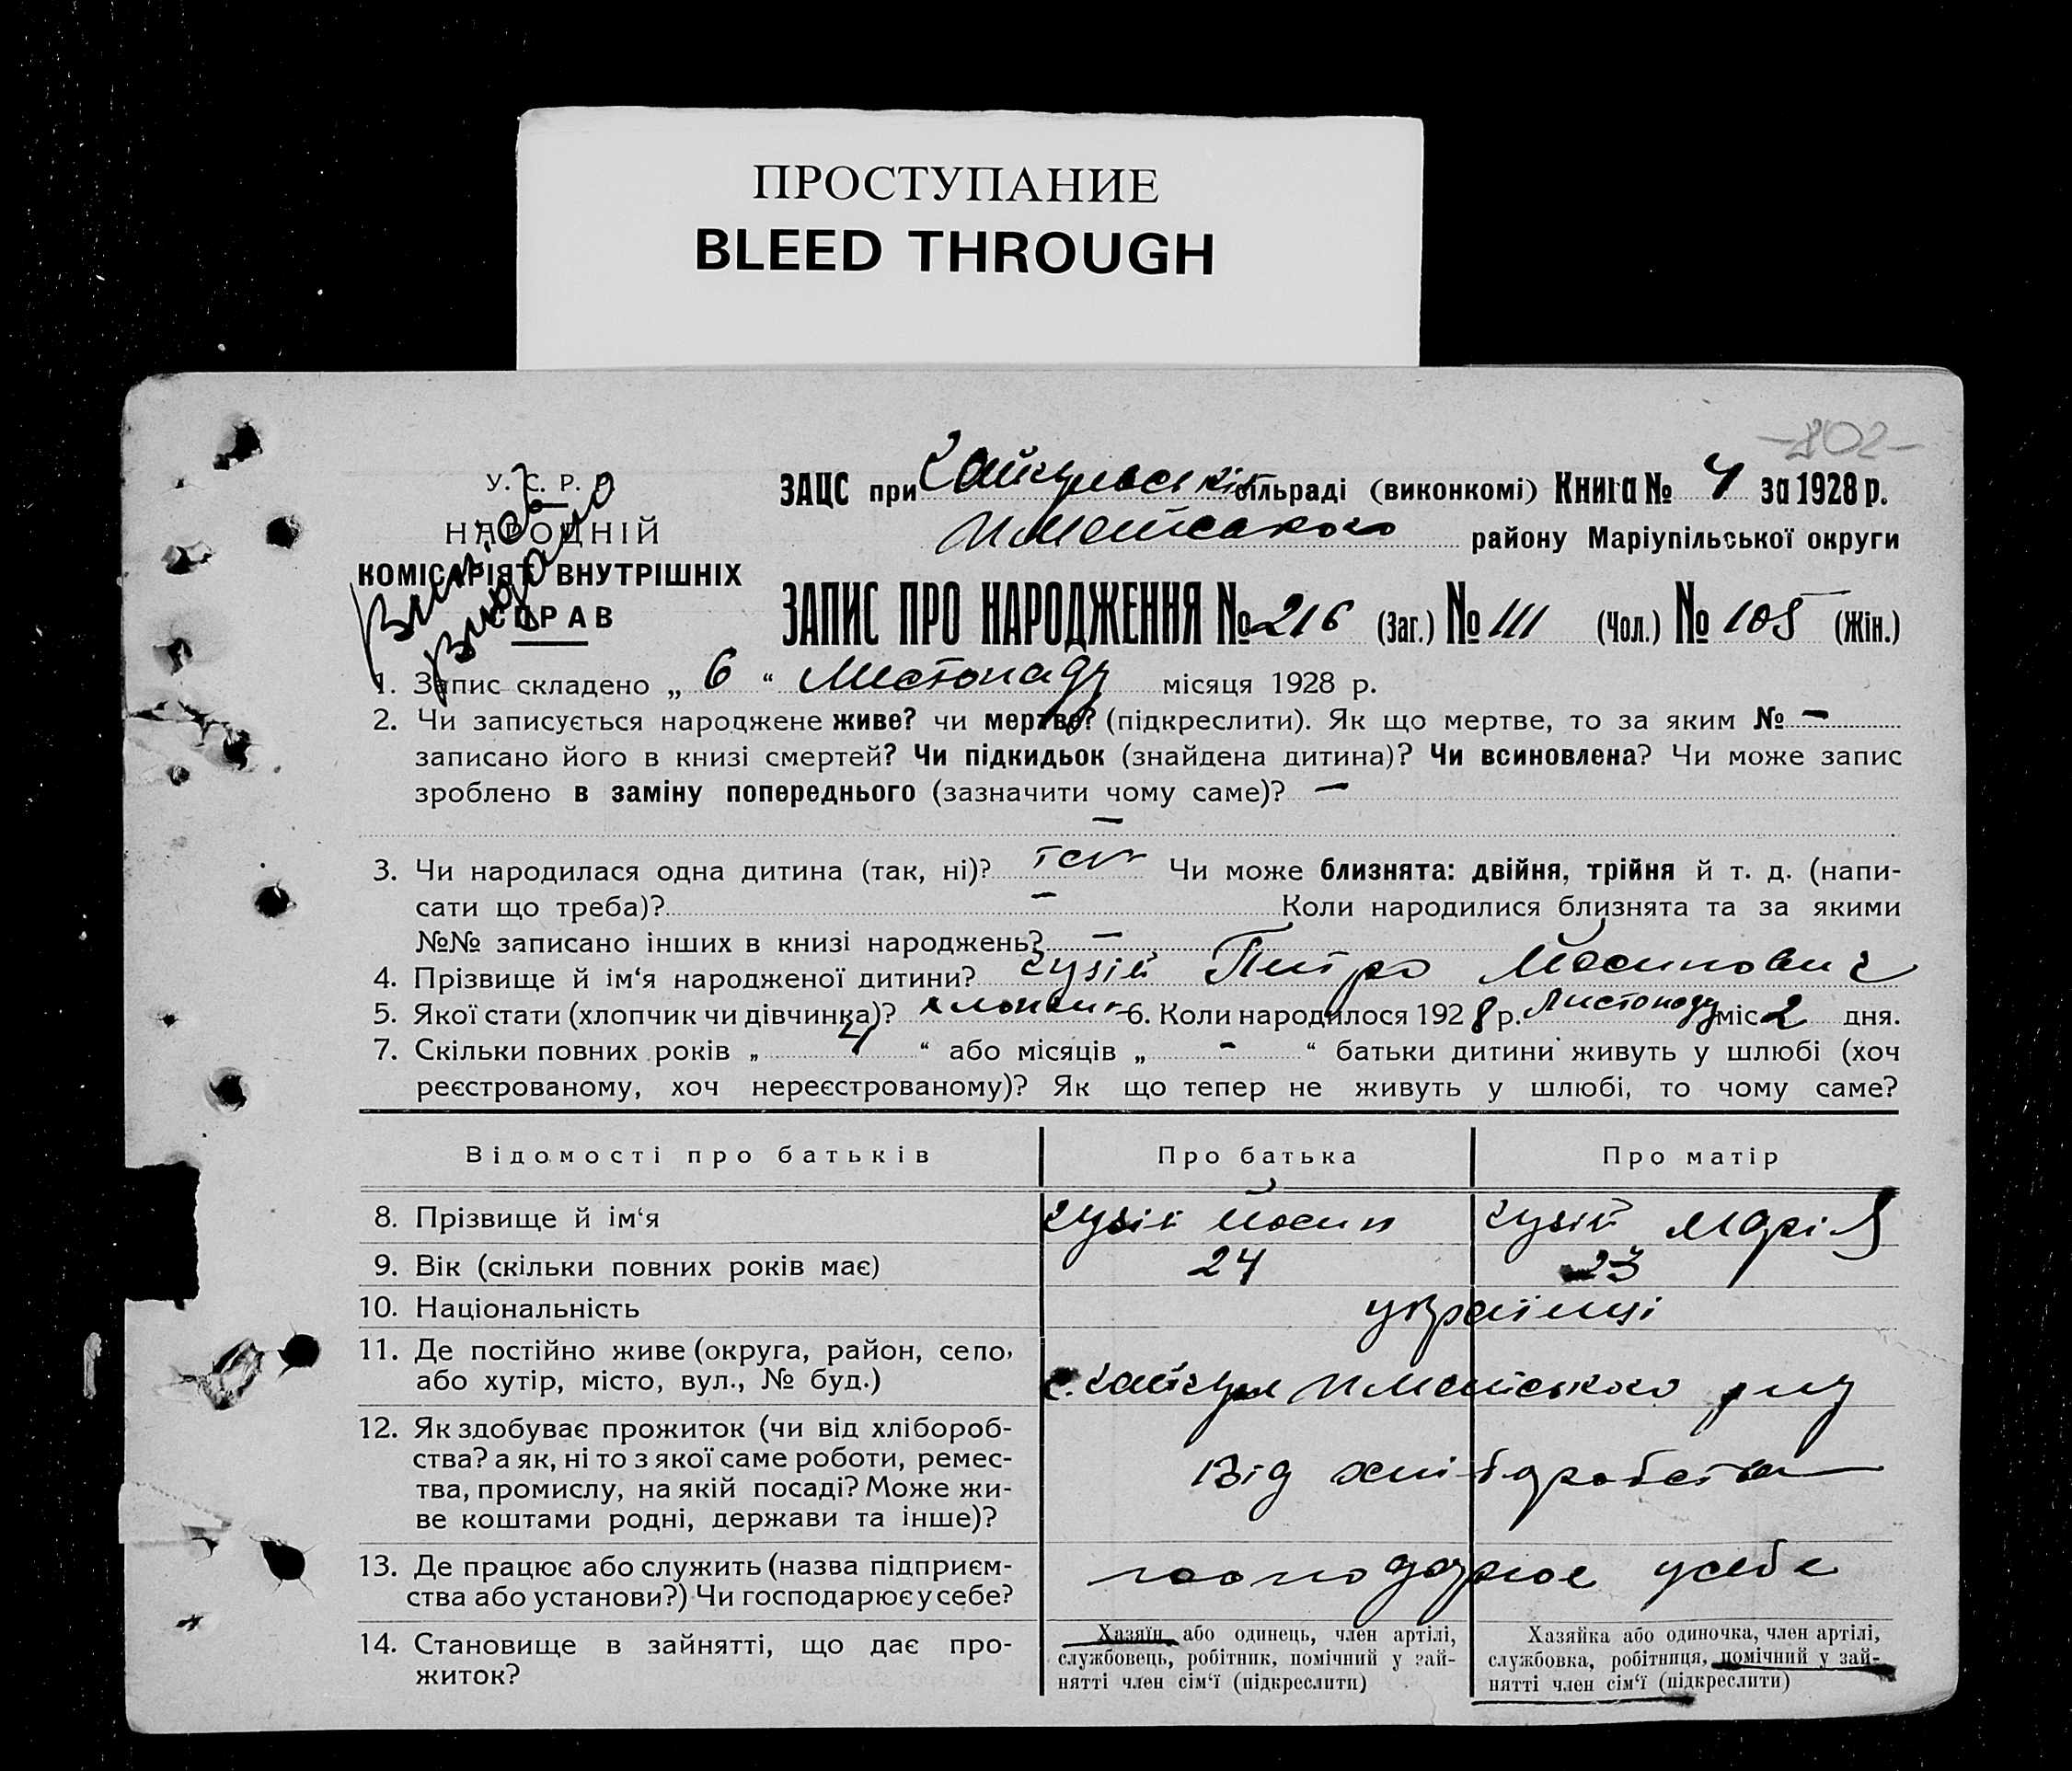 ПРОСТУПАНИЕ
BLEED THROUGH
-202-
У. С. Р. Р.
НАРОДНІЙ
КОМІСАРІЯТ ВНУТРІШНІХ
СПРАВ
ЗАЦС при сільраді (виконкомі) Книга № 4 за 1928 р.
району Маріупільської округи
ЗАПИС ПРО НАРОДЖЕННЯ № 216 (Заг.) № 111 (Чол.) № 105 (Жін.)
1. Запис складено „ 6 “ Листопаду місяця 1928 р.
2. Чи записується народжене живе? чи мертве? (підкреслити). Як що мертве, то за яким № —
записано його в книзі смертей? Чи підкидьок (знайдена дитина)? Чи всиновлена? Чи може запис
зроблено в заміну попереднього (зазначити чому саме)? —
—
3. Чи народилася одна дитина (так, ні)? так Чи може близнята: двійня, трійня й т. д. (напи-
сати що треба)? — Коли народилися близнята та за якими
№№ записано інших в книзі народжень? —
4. Прізвище й ім‘я народженої дитини? Гузій Питро Йосипович
5. Якої стати (хлопчик чи дівчинка)? хлопчик 6. Коли народилося 1928 р. Листопаду міс 2 дня.
7. Скільки повних років „ 4 “ або місяців „ - “ батьки дитини живуть у шлюбі (хоч
реєстрованому, хоч нереєстрованому)? Як що тепер не живуть у шлюбі, то чому саме?
Відомості про батьків Про батька Про матір
8. Прізвище й ім‘я Гузій Йосип Гузій Марія
9. Вік (скільки повних років має) 24 23
10. Національність українці
11. Де постійно живе (округа, район, село,
або хутір, місто, вул., № буд.)
12. Як здобуває прожиток (чи від хлібороб-
ства? а як, ні то з якої саме роботи, ремес-
тва, промислу, на якій посаді? Може жи-
ве коштами родні, держави та інше)?
Від хліборобства
13. Де працює або служить (назва підприєм-
ства або установи?) Чи господарює у себе?
господарює у себе
14. Становище в зайнятті, що дає про-
житок?
Хазяїн або одинець, член артілі,
службовець, робітник, помічний у зай-
нятті член сім‘ї (підкреслити)
Хазяйка або одиночка, член артілі,
службовка, робітниця, помічний у зай-
нятті член сім‘ї (підкреслити)